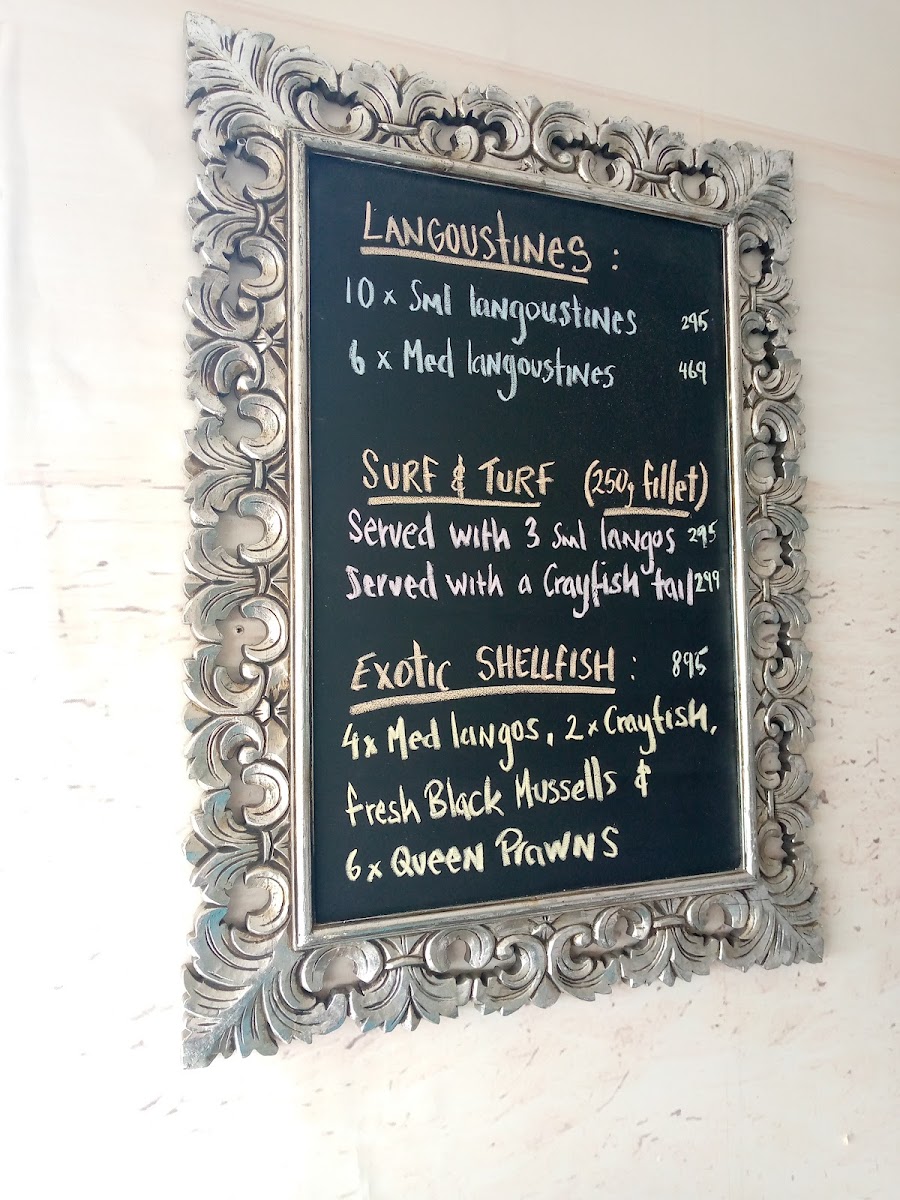 LANGOUSTINES :
10 x Sml langoustines 295
6 x Med langoustines 469
SURF & TURF (250g fillet)
Served with 3 Sml langos 295
Served with a Crayfish tail 299
EXOTIC SHELLFISH : 895
4x Med langos, 2x Crayfish,
fresh Black Mussells &
6x QUEEN PRAWNS